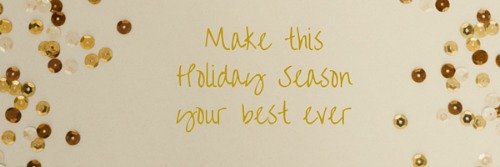 Make this
Holiday Season
your best ever